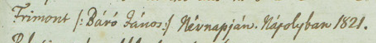 Frimont /: Báró János :/ Névnapján. Nápolyban 1821.